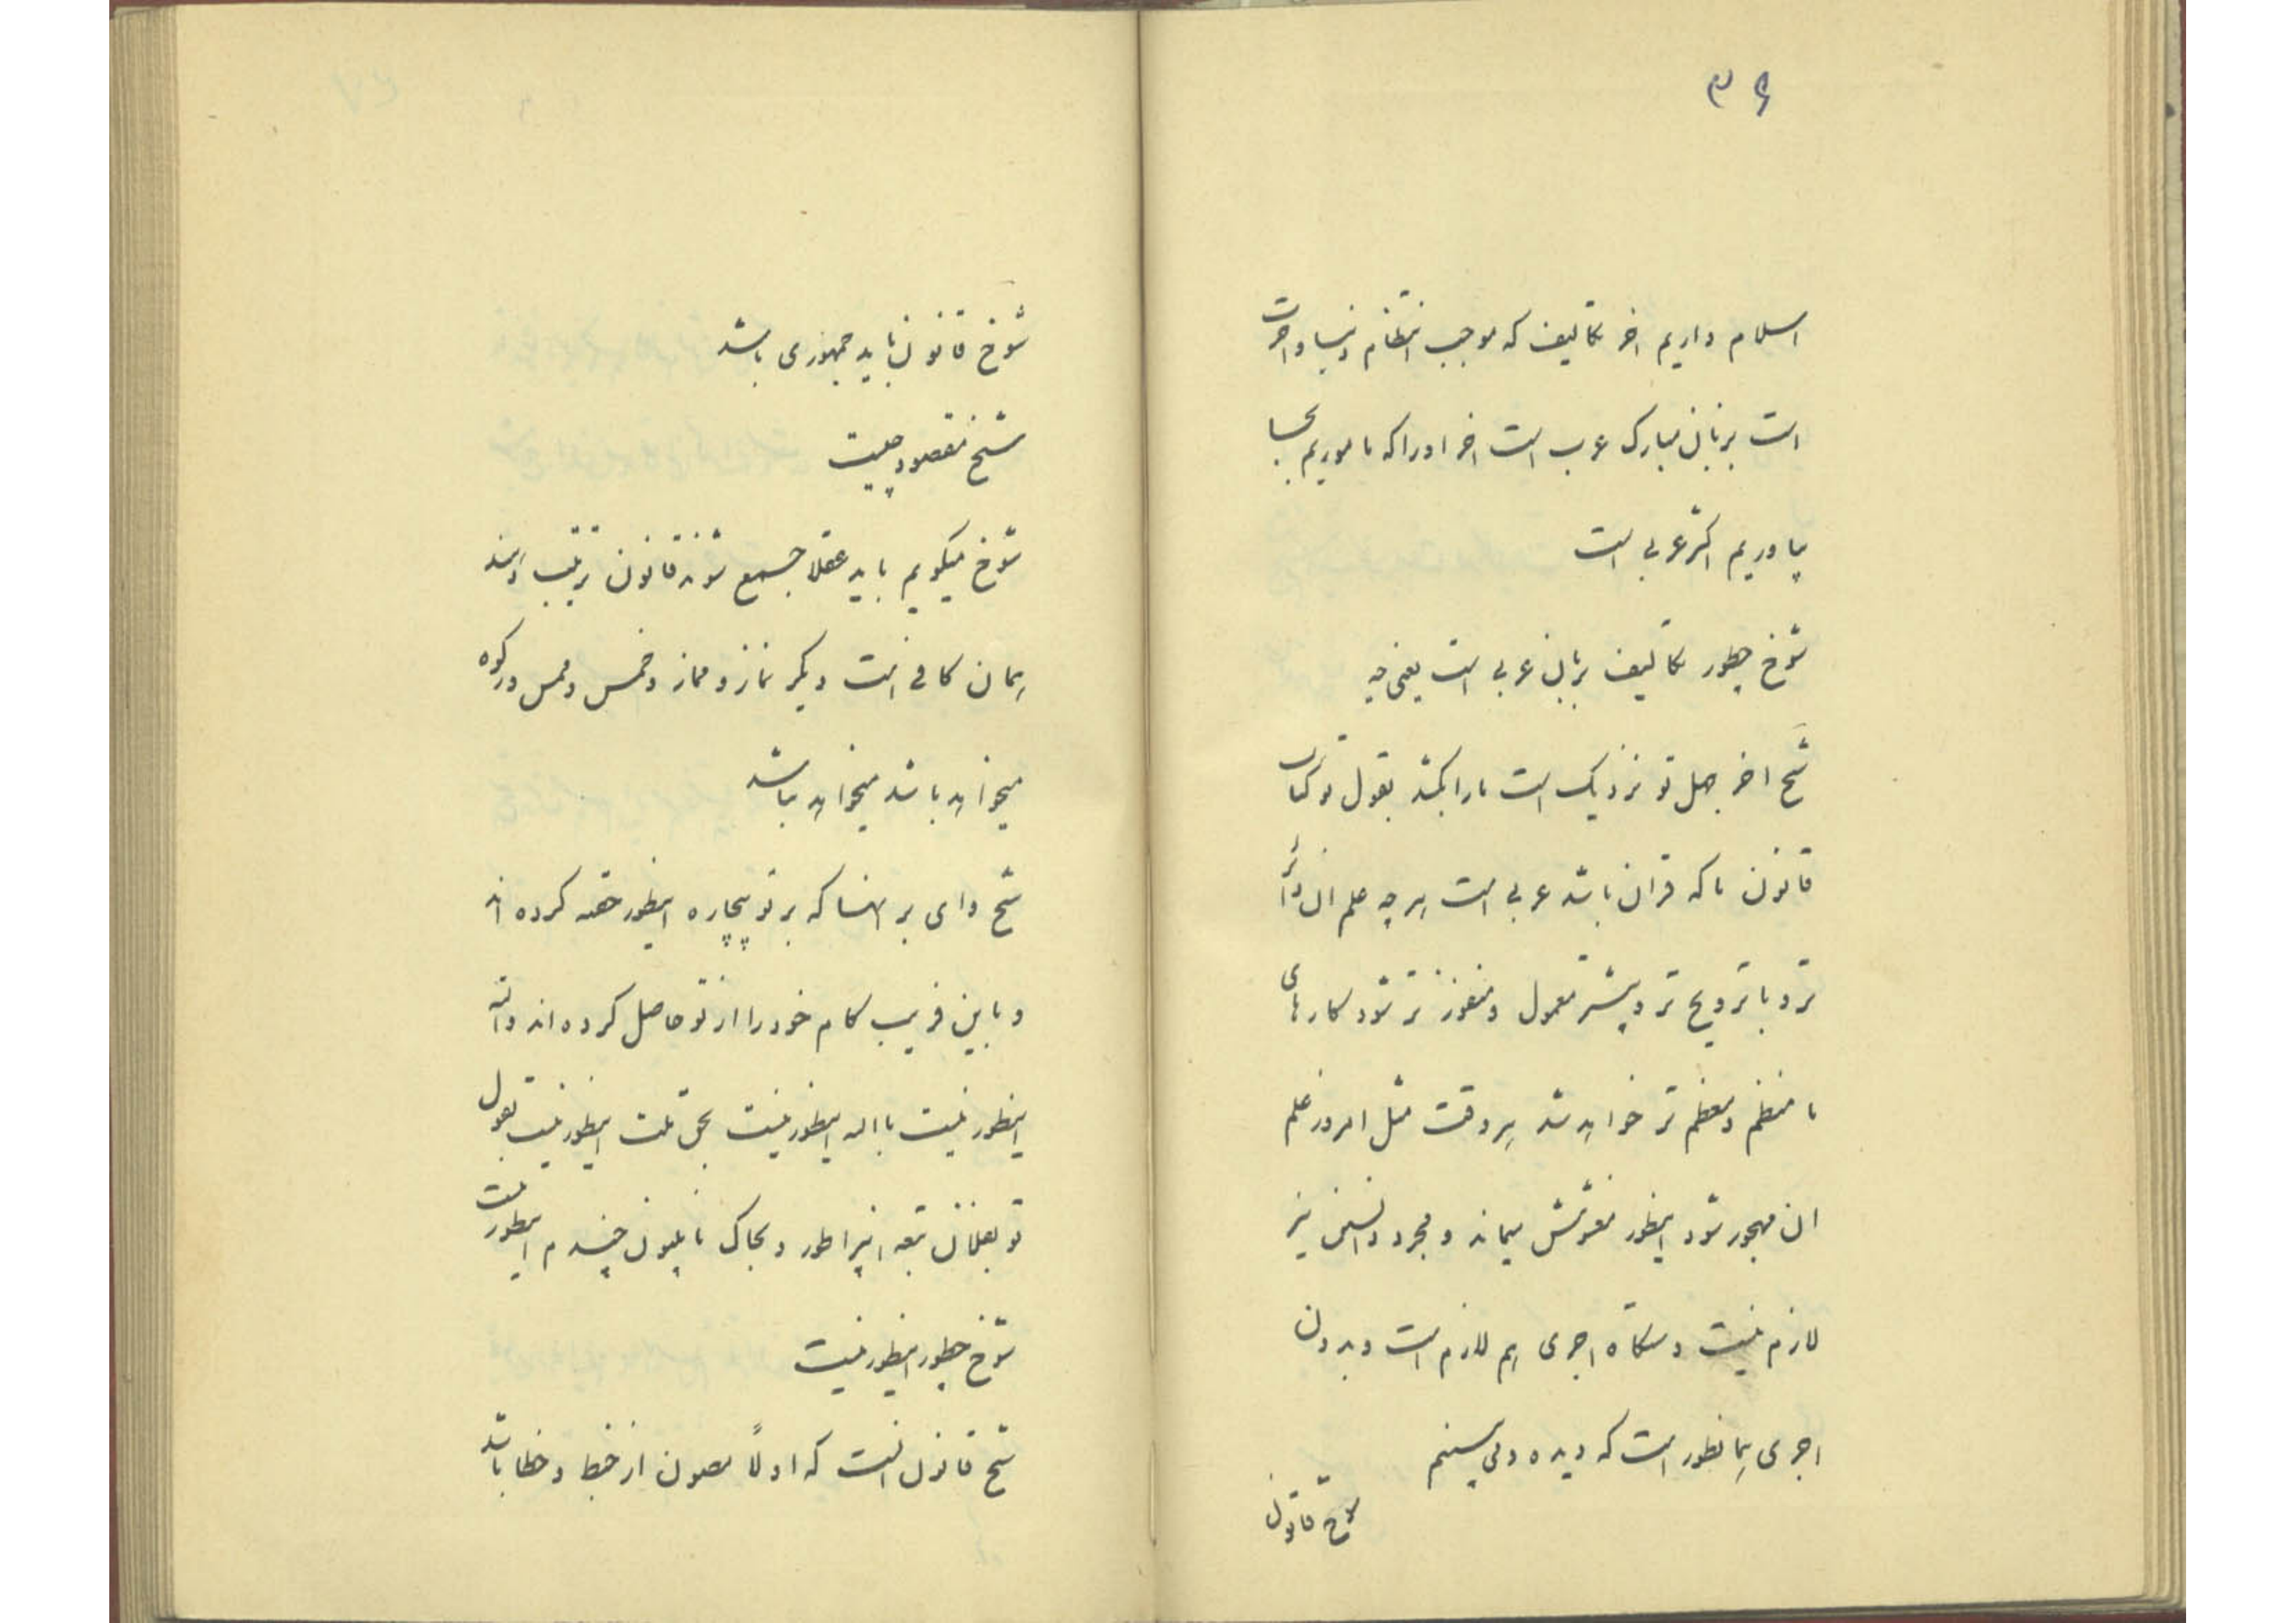 ۳۶
اسلام داریم اخر تکالیف که موجب انتظام دنیا و اخرت
است بزبان مبارک عرب است اخر اورا که ماموریم بجا
بیاوریم اکثر عربی است
شوخ چطور تکالیف بزبان عربی است یعنی چه
شیخ اخر جهل تو نزدیک است مارا بکشد بقول تو کتاب
قانون ما که قران باشد عربی است هر چه علم ان دائر
تر و با ترویج تر و بیشتر معمول و منفوذ تر شود کارهای
ما منظم و معظم تر خواهد شد هر وقت مثل امروز علم
ان مهجور شود اینطور مغشوش میماند و مجرد دانستن نیز
لازم نیست دستکاه اجری هم لازم است و بدون
اجری همانطور است که دیده و می بینیم
شوخ قانون
شوخ قانون باید جمهوری باشد
شیخ مقصود چیست
شوخ میکویم باید عقلا جمیع شوند قانون ترتیب دهند
همان کافی است دیکر نماز و مماز و خمس و ممس و زکوه
میخواهد باشد میخواهد نباشد
شیخ وای بر انها که بر تو بیچاره اینطور حقه کرده اند
و باین فریب کام خود را از تو حاصل کرده اند والله
اینطور نیست بالله اینطور نیست بحق ملت اینطور نیست بقول
تو بعلمان تبعه انپراطور و بخاک ناپلیون قسم اینطور نیست
شوخ چطور اینطور نیست
شیخ قانون انست که اولاً مصون از خبط و خطا باشد